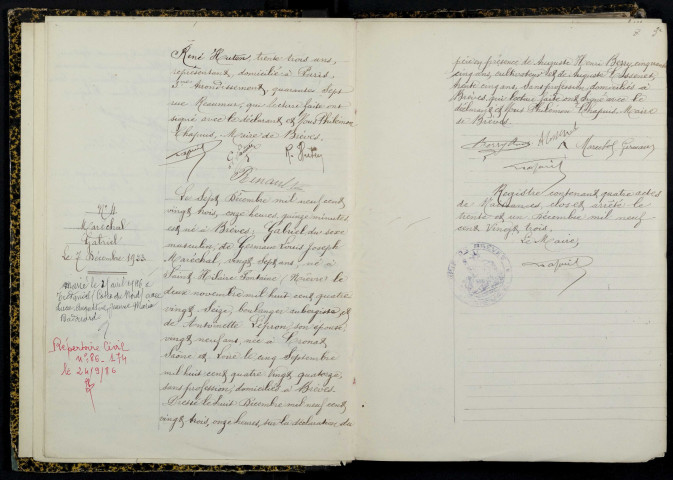 René Huton, trente trois ans,
représentant, domicilié à Paris,
5e Arrondissement, quarante sept
rue Humour, qui lecture faite ont
signé avec le déclarant et Nous Philomen
Chapuis, Maire de Brèves.
Renault
No 4
Maréchal
Gabriel
Le 7 Décembre 1923
Marié le 21 avril 1946 à
Répertoire Civil
no 86 - 174
le 24/9/86
Le Sept Décembre mil neuf cent
vingt trois, onze heures, quinze minutes
est né à Brèves, Gabriel du sexe
masculin, de Germain Louis Joseph
Maréchal, vingt sept ans, né à
Saint Hilaire Fontaine (Nièvre) le
deux novembre mil huit cent quatre
vingt Seize, boulanger aubergiste et
de Antoinette Lepron, son épouse
vingt neuf ans, née à
Saône et Loire le cinq Septembre
mil huit cent quatre vingt quatorze,
sans profession, domiciliés à Brèves.
Dressé le huit Décembre mil neuf cent
vingt trois, onze heures, sur la déclaration du
5
père en présence de Auguste Henri Borry, cinquante
cinq ans, cultivateur et de Auguste
trente cinq ans, Sans profession, domiciliés à
Brèves, qui lecture faite ont signé avec le
déclarant et Nous Philomen Chapuis, Maire
de Brèves.
Marechal Germain
Registre contenant quatre actes
de Naissances, clos et arrêté le
trente et un Décembre mil neuf
cent Vingt trois.
Le Maire,